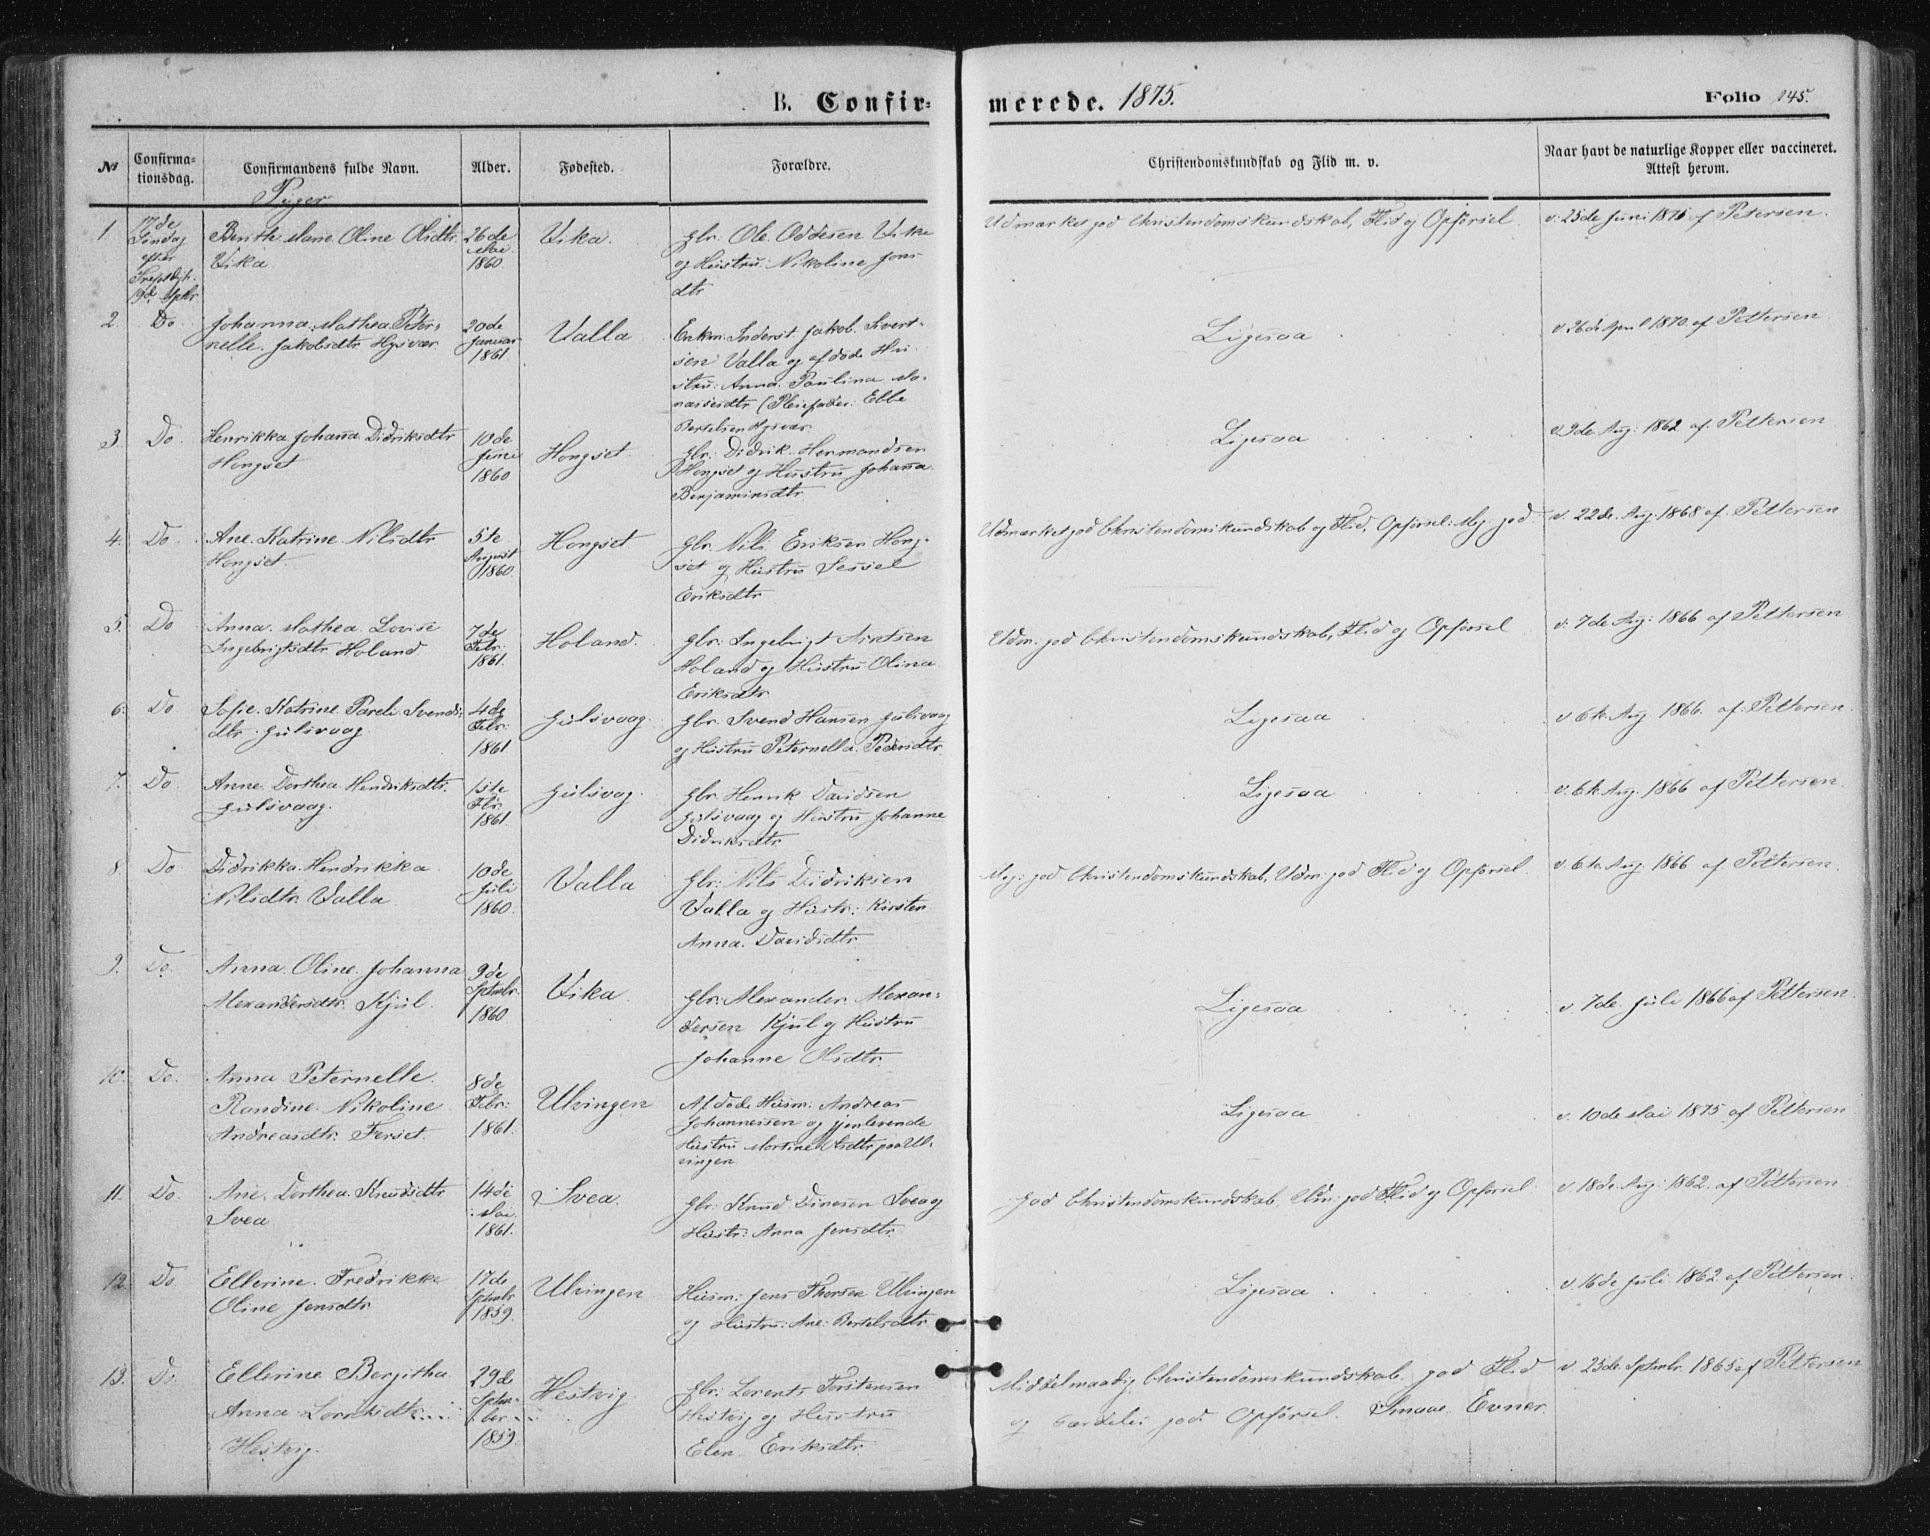 B. Confirmerede. 1875. Folio 145.
№ Confirmationsdag. Confirmandens fulde Navn. Alder. Fødested. Forældre. Christendomskundskab og Flid m. v. Naar havt de naturlige Kopper eller vaccineret. Attest herom.
Piger
1. 17de Søndag efter Trefdgh. 19de Sptbr.
Berithe Marie Oline Olsdtr. Vika
26de Mai 1860
Vika.
Gbr. Ole Oddesen Vika
og Hustru: Nikoline Jons-
dtr
Udmærket god Christendomskundskab, Flid og Opførsel
v. 25de Juni 1875 af Petersen.
2. Do
Johanna Mathea Peter-
nelle Jakobsdtr Hysvær
20de Januar 1861
Valla
Enkm. Inderst Jakob Sivert-
sen Valla og afdøde Hu-
stru: Anna Paulina Mo-
nassesdtr (Pleiefader: Ebbe
Bertelsen Hysvær
Ligesaa
v. 26de April 1870 af Pettersen
3. Do
Henrikka Johanna Didriksdtr
Hongset
10de Juni 1860
Hongset
Gbr. Didrik Hermandsen
Hongset og Hustru Johanna
Benjaminsdtr
Ligesaa
v. 9de Aug: 1862 af Pettersen
4. Do
Ane Katrine Nilsdtr
Hongset
5te August 1860
Hongset
Gbr. Nils Eriksen Hong-
set og Hustru Sessel
Eriksdtr
Udmærket god Christendomskundskab og Flid, Opførsel: Meg. god
v. 22de Aug. 1868 af Pettersen
5. Do
Anna Mathea Lovise
Ingebrigtsdtr Holand
7de Febr. 1861.
Holand.
Gbr: Ingebrigt Arntsen
Holand og Hustru Olina
Eriksdtr
Udm: god Christendomskundskab, Flid og Opførsel
v. 7de Aug: 1866 af Pettersen
6. Do
Sofie Katrine Pareli Svends-
dtr. Gulsvaag
4de Febr. 1861
Gulsvaag.
Gbr. Svend Hansen Gulsvaag
og Hustru Peternella Pedersdtr.
Ligesaa
v 6te Aug. 1866. af Pettersen
7. Do
Anne Dorthea Hendriksdtr.
Gulsvaag.
1ste Fbr. 1861
Gulsvag.
Gbr. Henrik Davidsen
Gulsvaag og Hustru Johanne
Didriksdtr
Ligesaa
v. 6te Aug. 1866 af Pettersen
8. Do
Didrikka Hendrikka
Nilsdtr. Valla
10de Juli 1860.
Valla
Gbr: Nils Didriksen
Valla og Hustr: Kirsten
Anna Davidsdtr
Meg. god Christendomskundskab, Udm: god Flid og Opførsel
v. 6te Aug. 1866 af Pettersen
9. Do.
Anna Oline Johanna
Alexandersdtr. Kjul.
9de Sptmbr. 1860
Vika
Gbr: Alexander Alexan-
dersen Kjul og Hustru
Johanne Olsdtr.
Ligesaa
v 7de Juli 1866 af Pettersen.
10. Do.
Anna Peternelle
Randine Nikoline
Andreasdtr. Forset.
8de Febr: 1861.
Ulvingen
Afdøde Husm: Andreas
Johannessen og gjenlevende
Hustru Martine Olsdtr paa Ul-
vingen
Ligesaa
v. 10de Mai 1875 af Pettersen
11. Do.
Ane Dorthea Knudsdtr
Svea
14de Mai 1861.
Svea.
Gbr: Knud Dinesen Svea og
Hustr: Anna Jensdtr.
God Christendomskundskab, Udm: god Flid og Opførsel
v 18de Aug: 1862. af Pettersen
12. Do
Ellerine Fredrikke
Oline Jensdtr
17de Sptmbr. 1859.
Ulvingen
Husm: Jens Thorsen Ulvingen
og Hustru: Ane Bertelsdtr.
Ligesaa
v 16de Juli 1862 af Pettersen.
13. Do.
Ellerine Bergitha
Anna Lorntsdtr.
Hestvig.
29de Septem-ber 1859.
Hestvig.
Gbr: Lorents Torstensen
Hestvig og Hustru
Elen Eriksdtr
Middelmaadig Christendomskundskab, god Flid
og særdeles god Opførsel. Smaae Evner.
v. 25de Sptmbr. 1865 af Pettersen